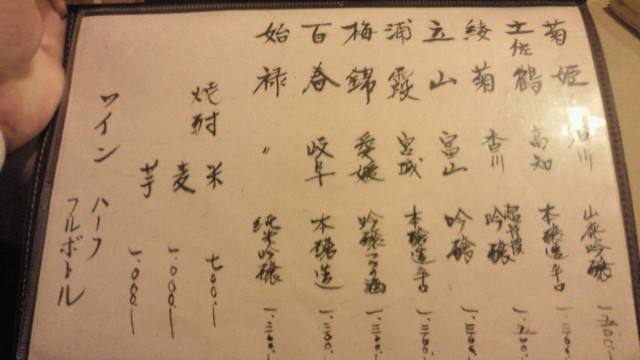 菊姫 石川 山廃吟醸
土佐鶴 高知 本醸造辛口
綾菊 香川 吟醸
立山 富山 吟醸
浦霞 宮城 本醸造辛口
梅錦 愛媛 吟醸つうの酒 一、三〇〇.ー
百春 岐阜 本醸造 一、三〇〇.ー
始禄 〃 純米吟醸 一、三〇〇.ー
焼酎 米 七〇〇.ー
麦 一、〇〇〇.ー
芋 一、〇〇〇.ー
ワイン ハーフ
フルボトル